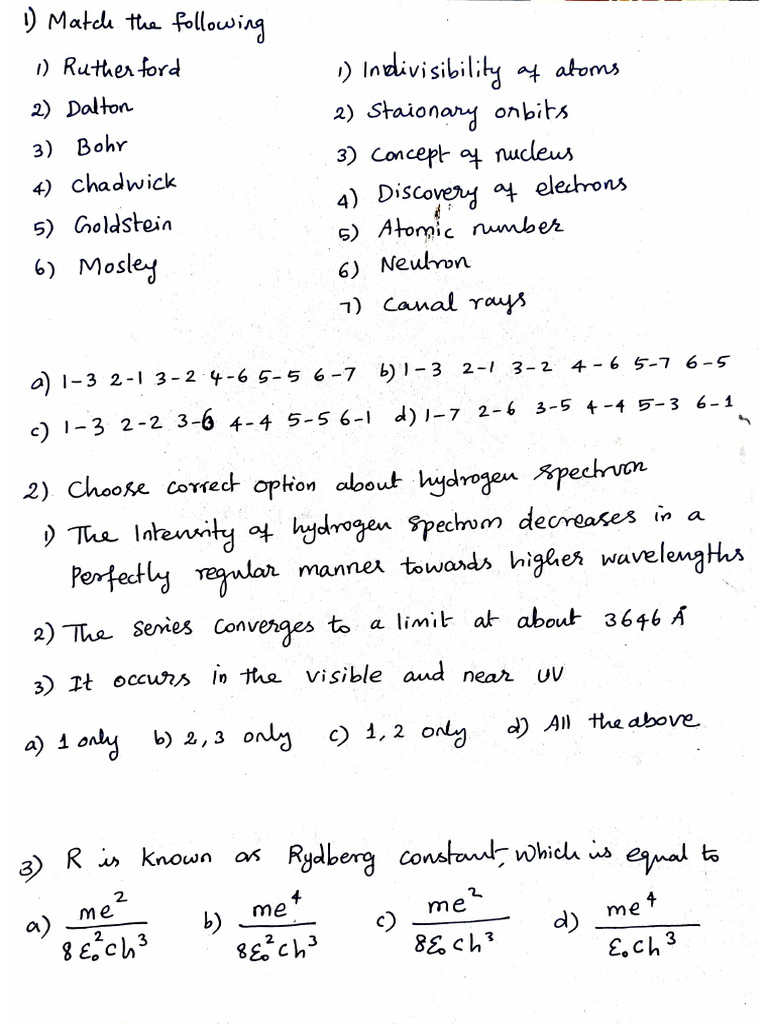 1) Match the following
1) Rutherford 1) Indivisibility of atoms
2) Dalton 2) Staionary orbits
3) Bohr 3) Concept of nucleus
4) Chadwick 4) Discovery of electrons
5) Goldstein 5) Atomic number
6) Mosley 6) Neutron
7) Canal rays
a) 1-3 2-1 3-2 4-6 5-5 6-7 b) 1-3 2-1 3-2 4-6 5-7 6-5
c) 1-3 2-2 3-6 4-4 5-5 6-1 d) 1-7 2-6 3-5 4-4 5-3 6-1
2) Choose correct option about hydrogen spectrum
1) The Intensity of hydrogen spectrum decreases in a
Perfectly regular manner towards higher wavelengths
2) The series converges to a limit at about 3646 Å
3) It occurs in the visible and near UV
a) 1 only b) 2,3 only c) 1,2 only d) All the above
3) R is known as Rydberg constant, which is equal to
a) me²/8ε₀²ch³ b) me⁴/8ε₀²ch³ c) me²/8ε₀ch³ d) me⁴/ε₀ch³